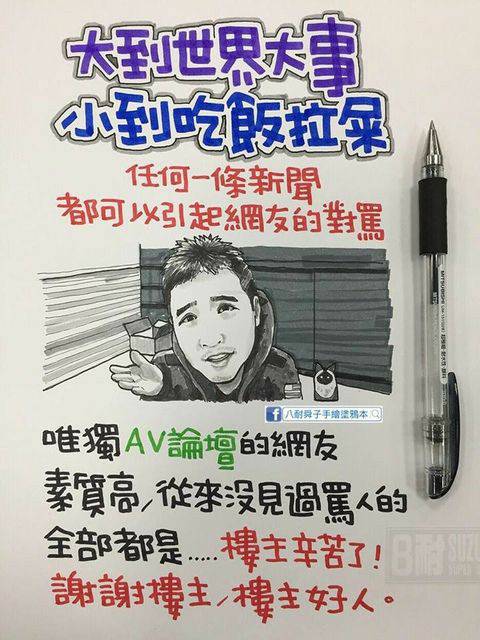 大到世界大事
小到吃飯拉屎
任何一條新聞
都可以引起網友的對罵
八耐舜子手繪塗鴉本
唯獨AV論壇的網友
素質高/從來沒見過罵人的
全部都是.....樓主辛苦了!
謝謝樓主/樓主好人。
8耐